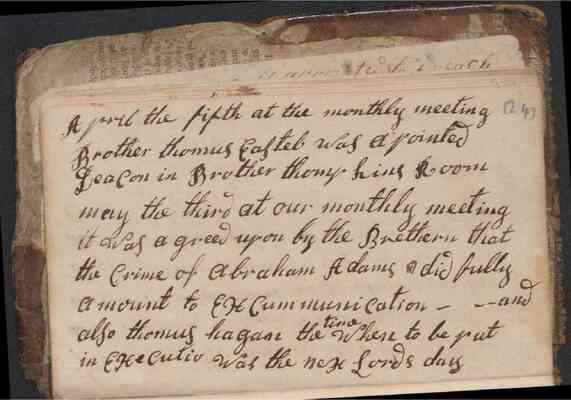 to preach
April the fifth at the monthly meeting
Brother thomus Casteb was apointed
Deacon in Brother thompkins Room
may the third at our monthly meeting
it was a greed upon by the Brethern that
the Crime of Abraham Adams did fully
amount to EXCummunication - -- and
also thomus hagan the time When to be put
in EXecutio was the neX Lords day